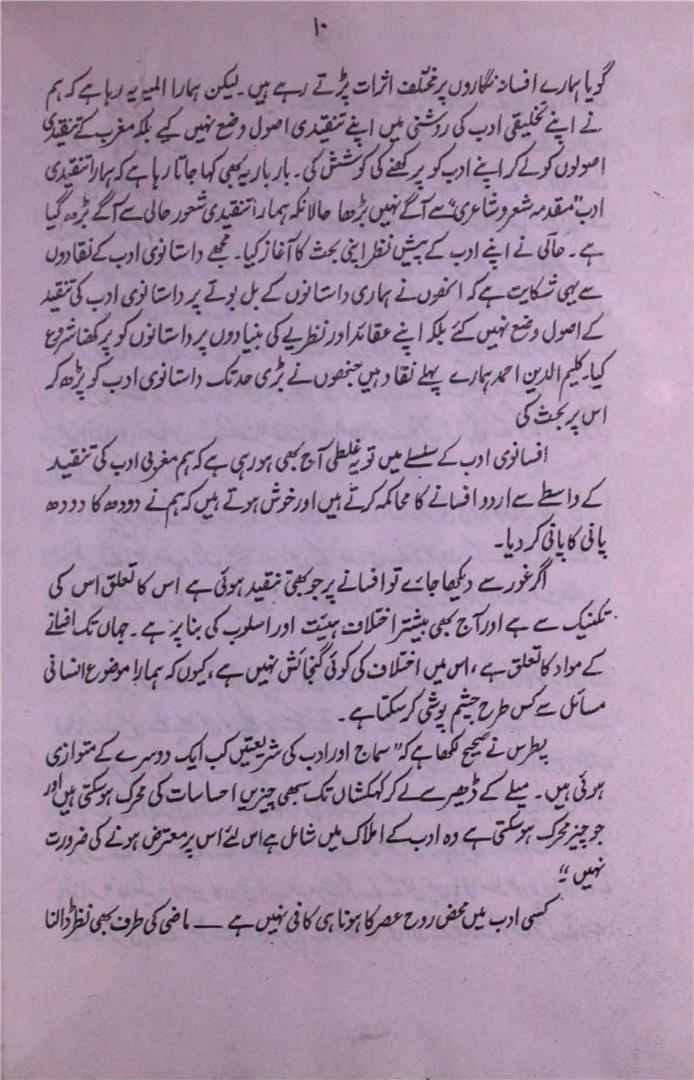 ۱۰
گویا ہمارے افسانہ نگاروں پر مختلف اثرات پڑتے رہے ہیں۔ لیکن ہمارا المیہ یہ رہا ہے کہ ہم
نے اپنے تخلیقی ادب کی روشنی میں اپنے تنقیدی اصول وضع نہیں کیے بلکہ مغرب کے تنقیدی
اصولوں کو لے کر اپنے ادب کو پرکھنے کی کوشش کی۔ بار بار یہ بھی کہا جاتا رہا ہے کہ ہمارا تنقیدی
ادب "مقدمہ شعر و شاعری" سے آگے نہیں بڑھا حالانکہ ہمارا تنقیدی شعور حالی سے آگے بڑھ گیا
ہے۔ حالی نے اپنے ادب کے پیش نظر اپنی بحث کا آغاز کیا۔ مجھے داستانوی ادب کے نقادوں
سے یہی شکایت ہے کہ انھوں نے ہماری داستانوں کے بل بوتے پر داستانوی ادب کی تنقید
کے اصول وضع نہیں کئے بلکہ اپنے عقائد اور نظریے کی بنیادوں پر داستانوں کو پرکھنا شروع
کیا۔ کلیم الدین احمد ہمارے پہلے نقاد ہیں جنھوں نے بڑی حد تک داستانوی ادب کو پڑھ کر
اس پر بحث کی
افسانوی ادب کے سلسلے میں تو یہ غلطی آج بھی ہو رہی ہے کہ ہم مغربی ادب کی تنقید
کے واسطے سے اردو افسانے کا محاکمہ کرتے ہیں اور خوش ہوتے ہیں کہ ہم نے دودھ کا دودھ
پانی کا پانی کر دیا۔
اگر غور سے دیکھا جائے تو افسانے پر جو بھی تنقید ہوئی ہے اس کا تعلق اس کی
تکنیک سے ہے اور آج بھی بیشتر اختلاف ہیئت اور اسلوب کی بنا پر ہے۔ جہاں تک افسانے
کے مواد کا تعلق ہے، اس میں اختلاف کی کوئی گنجائش نہیں ہے، کیوں کہ ہمارا موضوع انسانی
مسائل سے کس طرح چشم پوشی کر سکتا ہے۔
پطرس نے صحیح لکھا ہے کہ "سماج اور ادب کی شریعتیں کب ایک دوسرے کے متوازی
ہوئی ہیں۔ میلے کے ڈھیر سے لے کر کہکشاں تک سبھی چیزیں احساسات کی محرک ہو سکتی ہیں اور
جو چیز محرک ہو سکتی ہے وہ ادب کے املاک میں شامل ہے اس لئے اس پر معترض ہونے کی ضرورت
نہیں"
کسی ادب میں محض روح عصر کا ہونا ہی کافی نہیں ہے — ماضی کی طرف بھی نظر ڈالنا